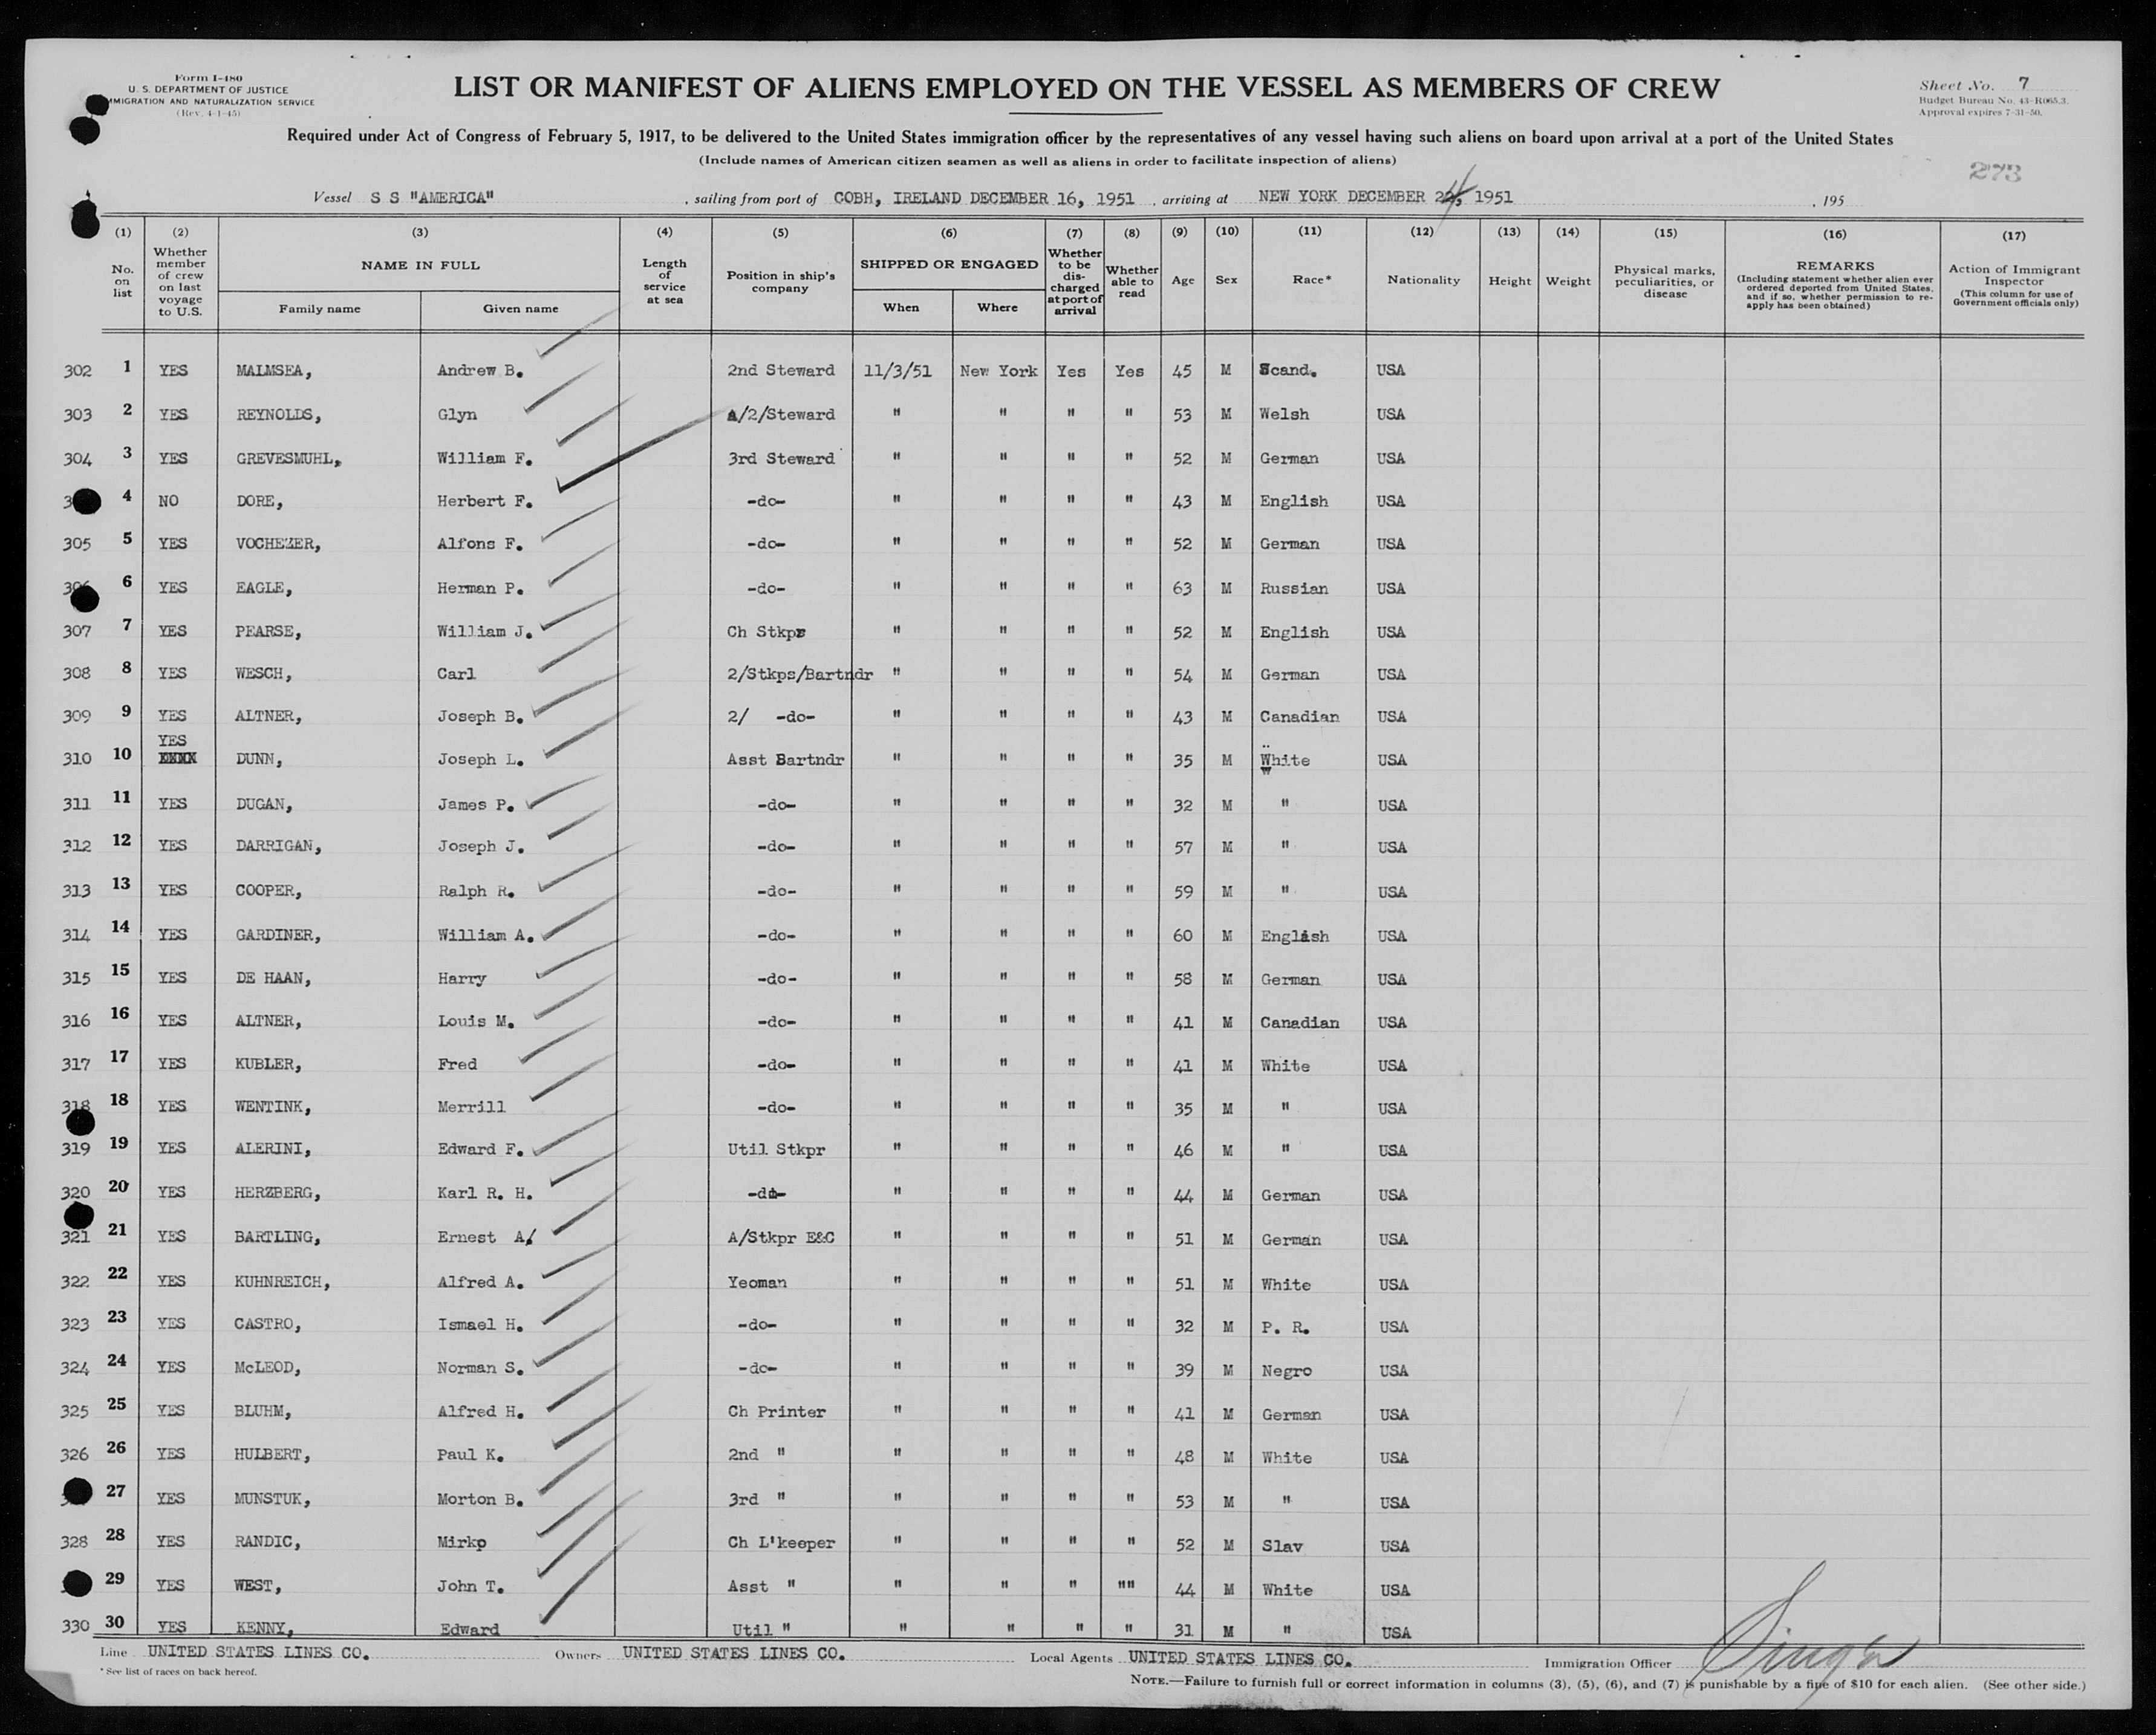 Form I-480
U. S. DEPARTMENT OF JUSTICE
IMMIGRATION AND NATURALIZATION SERVICE
(Rev. 4-1-45)
LIST OR MANIFEST OF ALIENS EMPLOYED ON THE VESSEL AS MEMBERS OF CREW
Sheet No. 7
Budget Bureau No. 43-R065.3.
Approval expires 7-31-50.
Required under Act of Congress of February 5, 1917, to be delivered to the United States immigration officer by the representatives of any vessel having such aliens on board upon arrival at a port of the United States
(Include names of American citizen seamen as well as aliens in order to facilitate inspection of aliens)
273
Vessel S S "AMERICA" , sailing from port of COBH, IRELAND DECEMBER 16, 1951 , arriving at NEW YORK DECEMBER 24, 1951 , 195
(1) No. on list
(2) Whether member of crew on last voyage to U.S.
(3) NAME IN FULL
Family name Given name
(4) Length of service at sea
(5) Position in ship's company
(6) SHIPPED OR ENGAGED
When Where
(7) Whether to be discharged at port of arrival
(8) Whether able to read
(9) Age
(10) Sex
(11) Race*
(12) Nationality
(13) Height
(14) Weight
(15) Physical marks, peculiarities, or disease
(16) REMARKS (Including statement whether alien ever ordered deported from United States, and if so, whether permission to re-apply has been obtained)
(17) Action of Immigrant Inspector (This column for use of Government officials only)
302 1 YES MALMSEA, Andrew B. 2nd Steward 11/3/51 New York Yes Yes 45 M Scand. USA
303 2 YES REYNOLDS, Glyn A/2/Steward " " " " 53 M Welsh USA
304 3 YES GREVESMUHL, William F. 3rd Steward " " " " 52 M German USA
3 4 NO DORE, Herbert F. -do- " " " " 43 M English USA
305 5 YES VOCHEZER, Alfons F. -do- " " " " 52 M German USA
306 6 YES EAGLE, Herman P. -do- " " " " 63 M Russian USA
307 7 YES PEARSE, William J. Ch Stkpr " " " " 52 M English USA
308 8 YES WESCH, Carl 2/Stkps/Bartndr " " " " 54 M German USA
309 9 YES ALTNER, Joseph B. 2/ -do- " " " " 43 M Canadian USA
310 10 YES DUNN, Joseph L. Asst Bartndr " " " " 35 M White USA
311 11 YES DUGAN, James P. -do- " " " " 32 M " USA
312 12 YES DARRIGAN, Joseph J. -do- " " " " 57 M " USA
313 13 YES COOPER, Ralph R. -do- " " " " 59 M " USA
314 14 YES GARDINER, William A. -do- " " " " 60 M English USA
315 15 YES DE HAAN, Harry -do- " " " " 58 M German USA
316 16 YES ALTNER, Louis M. -do- " " " " 41 M Canadian USA
317 17 YES KUBLER, Fred -do- " " " " 41 M White USA
318 18 YES WENTINK, Merrill -do- " " " " 35 M " USA
319 19 YES ALERINI, Edward F. Util Stkpr " " " " 46 M " USA
320 20 YES HERZBERG, Karl R. H. -do- " " " " 44 M German USA
321 21 YES BARTLING, Ernest A/ A/Stkpr E&C " " " " 51 M German USA
322 22 YES KUHNREICH, Alfred A. Yeoman " " " " 51 M White USA
323 23 YES CASTRO, Ismael H. -do- " " " " 32 M P. R. USA
324 24 YES McLEOD, Norman S. -do- " " " " 39 M Negro USA
325 25 YES BLUHM, Alfred H. Ch Printer " " " " 41 M German USA
326 26 YES HULBERT, Paul K. 2nd " " " " " 48 M White USA
27 YES MUNSTUK, Morton B. 3rd " " " " " 53 M " USA
328 28 YES RANDIC, Mirko Ch L'keeper " " " " 52 M Slav USA
29 YES WEST, John T. Asst " " " " "" 44 M White USA
330 30 YES KENNY, Edward Util " " " " " 31 M " USA
Line UNITED STATES LINES CO. Owners UNITED STATES LINES CO. Local Agents UNITED STATES LINES CO. Immigration Officer
* See list of races on back hereof.
NOTE.—Failure to furnish full or correct information in columns (3), (5), (6), and (7) is punishable by a fine of $10 for each alien. (See other side.)